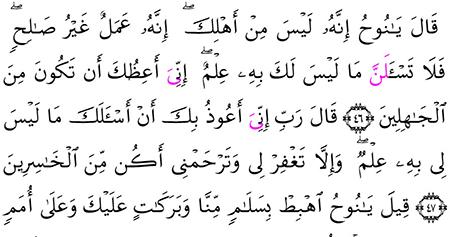 قَالَ يَٰنُوحُ إِنَّهُۥ لَيْسَ مِنْ أَهْلِكَۖ إِنَّهُۥ عَمَلٌ غَيْرُ صَٰلِحٍۖ
فَلَا تَسْـَٔلَنَّ مَا لَيْسَ لَكَ بِهِۦ عِلْمٌۖ إِنِّيَ أَعِظُكَ أَن تَكُونَ مِنَ
ٱلْجَٰهِلِينَ ﴿٤٦﴾ قَالَ رَبِّ إِنِّيَ أَعُوذُ بِكَ أَنْ أَسْـَٔلَكَ مَا لَيْسَ
لِى بِهِۦ عِلْمٌۖ وَإِلَّا تَغْفِرْ لِى وَتَرْحَمْنِى أَكُن مِّنَ ٱلْخَٰسِرِينَ
﴿٤٧﴾ قِيلَ يَٰنُوحُ ٱهْبِطْ بِسَلَٰمٍ مِّنَّا وَبَرَكَٰتٍ عَلَيْكَ وَعَلَىٰ أُمَمٍ